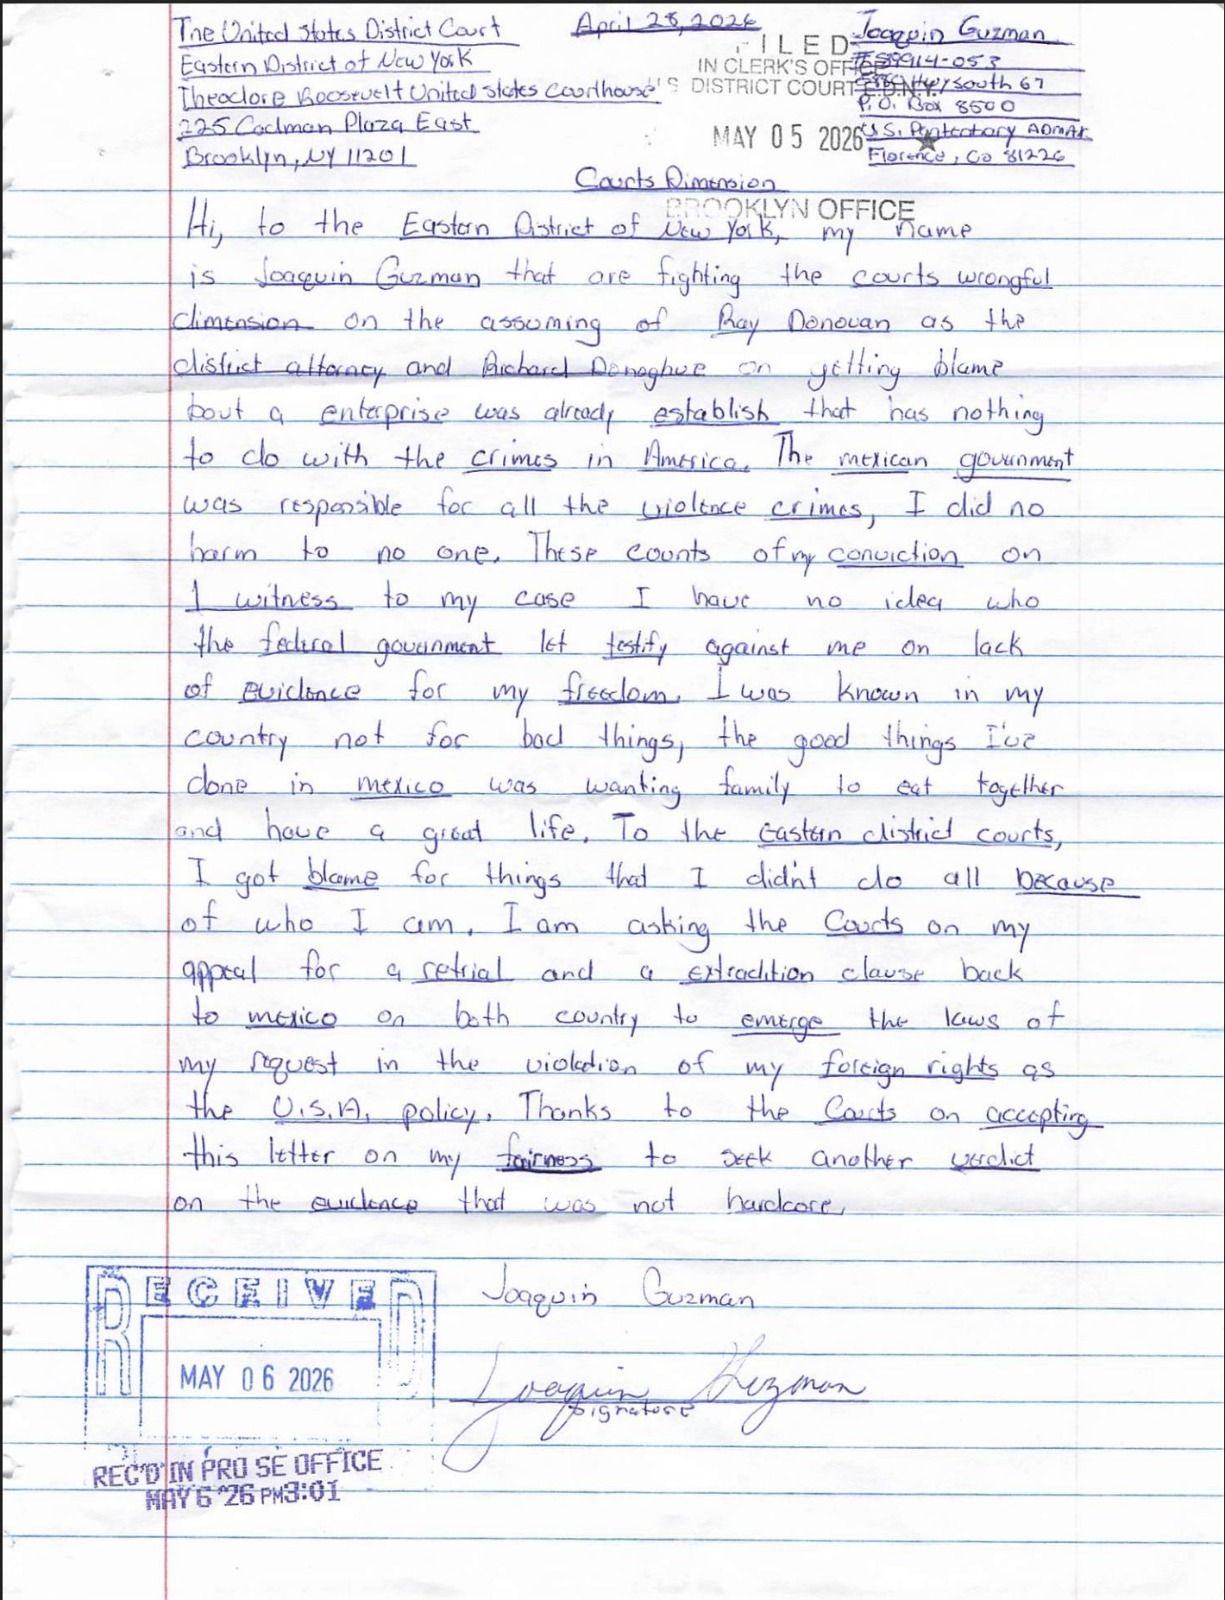 The United States District Court
Eastern District of New York
Theodore Roosevelt United States Courthouse
225 Cadman Plaza East
Brooklyn, NY 11201
April 28, 2026
FILED
IN CLERK'S OFFICE
U.S DISTRICT COURT E.D.N.Y.
MAY 05 2026 ★
BROOKLYN OFFICE
Joaquin Guzman
#89914-053
Hwy South 67
P.O. Box 8500
U.S. Pententiary ADMAX
Florence, Co 81226
Courts Dimension
Hi, to the Eastern District of New York, my name
is Joaquin Guzman that are fighting the courts wrongful
dimension on the assuming of Ray Donovan as the
district attorney and Richard Donoghue on getting blame
bout a enterprise was already establish that has nothing
to do with the crimes in America. The mexican government
was responsible for all the violence crimes, I did no
harm to no one. These counts of my conviction on
1 witness to my case I have no idea who
the federal government let testify against me on lack
of evidence for my freedom. I was known in my
country not for bad things, the good things I've
done in mexico was wanting family to eat together
and have a great life. To the Eastern district courts,
I got blame for things that I didn't do all because
of who I am. I am asking the Courts on my
appeal for a retrial and a extradition clause back
to mexico on both country to emerge the laws of
my request in the violation of my foreign rights as
the U.S.A. policy. Thanks to the Courts on accepting
this letter on my fairness to seek another verdict
on the evidence that was not hardcore.
Joaquin Guzman
Joaquin Guzman
Signature
RECEIVED
MAY 06 2026
REC'D IN PRO SE OFFICE
MAY 6 '26 PM3:01